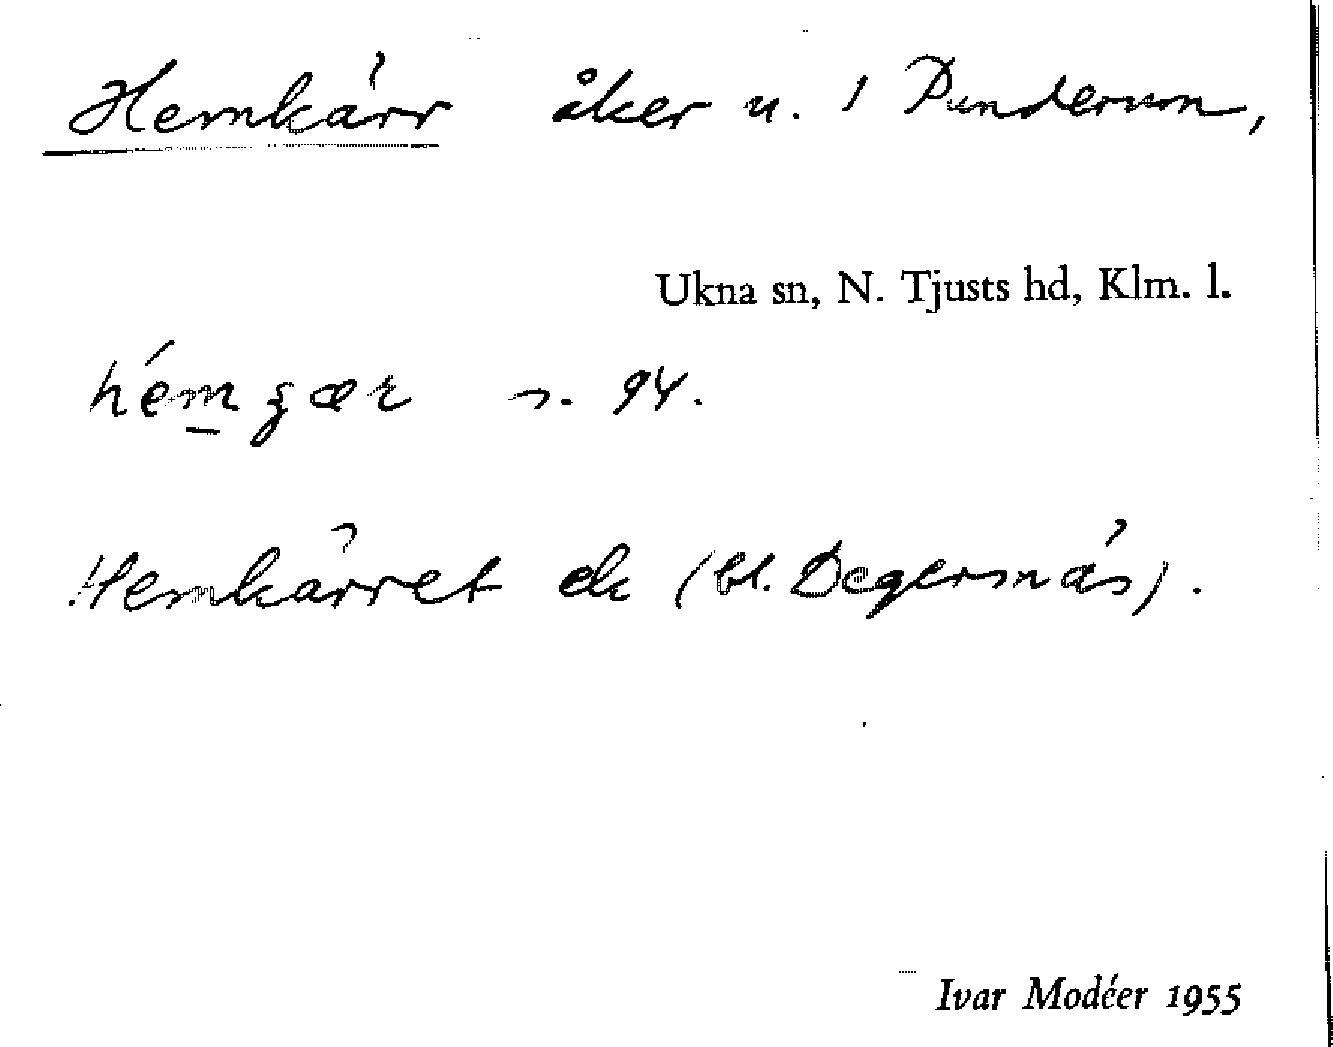 Hemkärr åker u. 1 Punderum,
Ukna sn, N. Tjusts hd, Klm. l.
94.
Hemkärret ek (bl. Degermås).
Ivar Modéer 1955